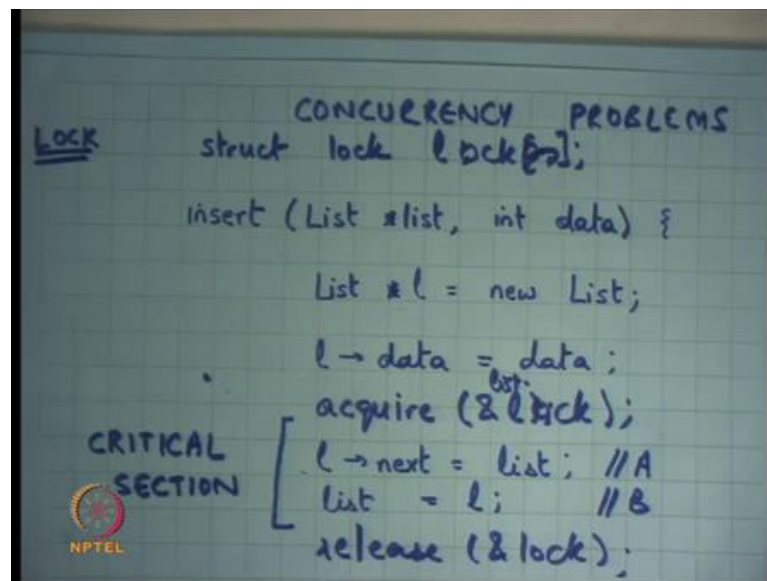 CONCURRENCY PROBLEMS
LOCK struct lock lock[];
insert (List *list, int data) {
List * l = new List;
l → data = data;
list.
acquire (& lock);
CRITICAL SECTION
l → next = list; //A
list = l; //B
release (& lock);
NPTEL